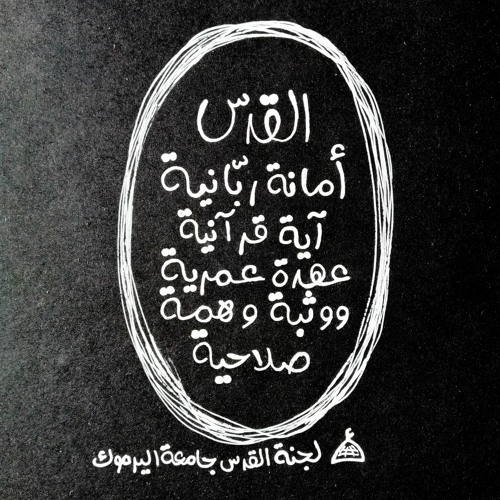 القدس
أمانة ربّانية
آية قرآنية
عهدة عمرية
ووثبة وهمة
صلاحية
لجنة القدس جامعة اليرموك